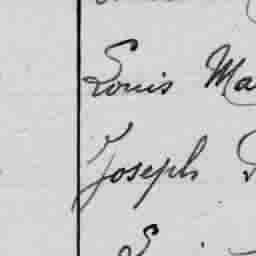 Louis Ma
Joseph